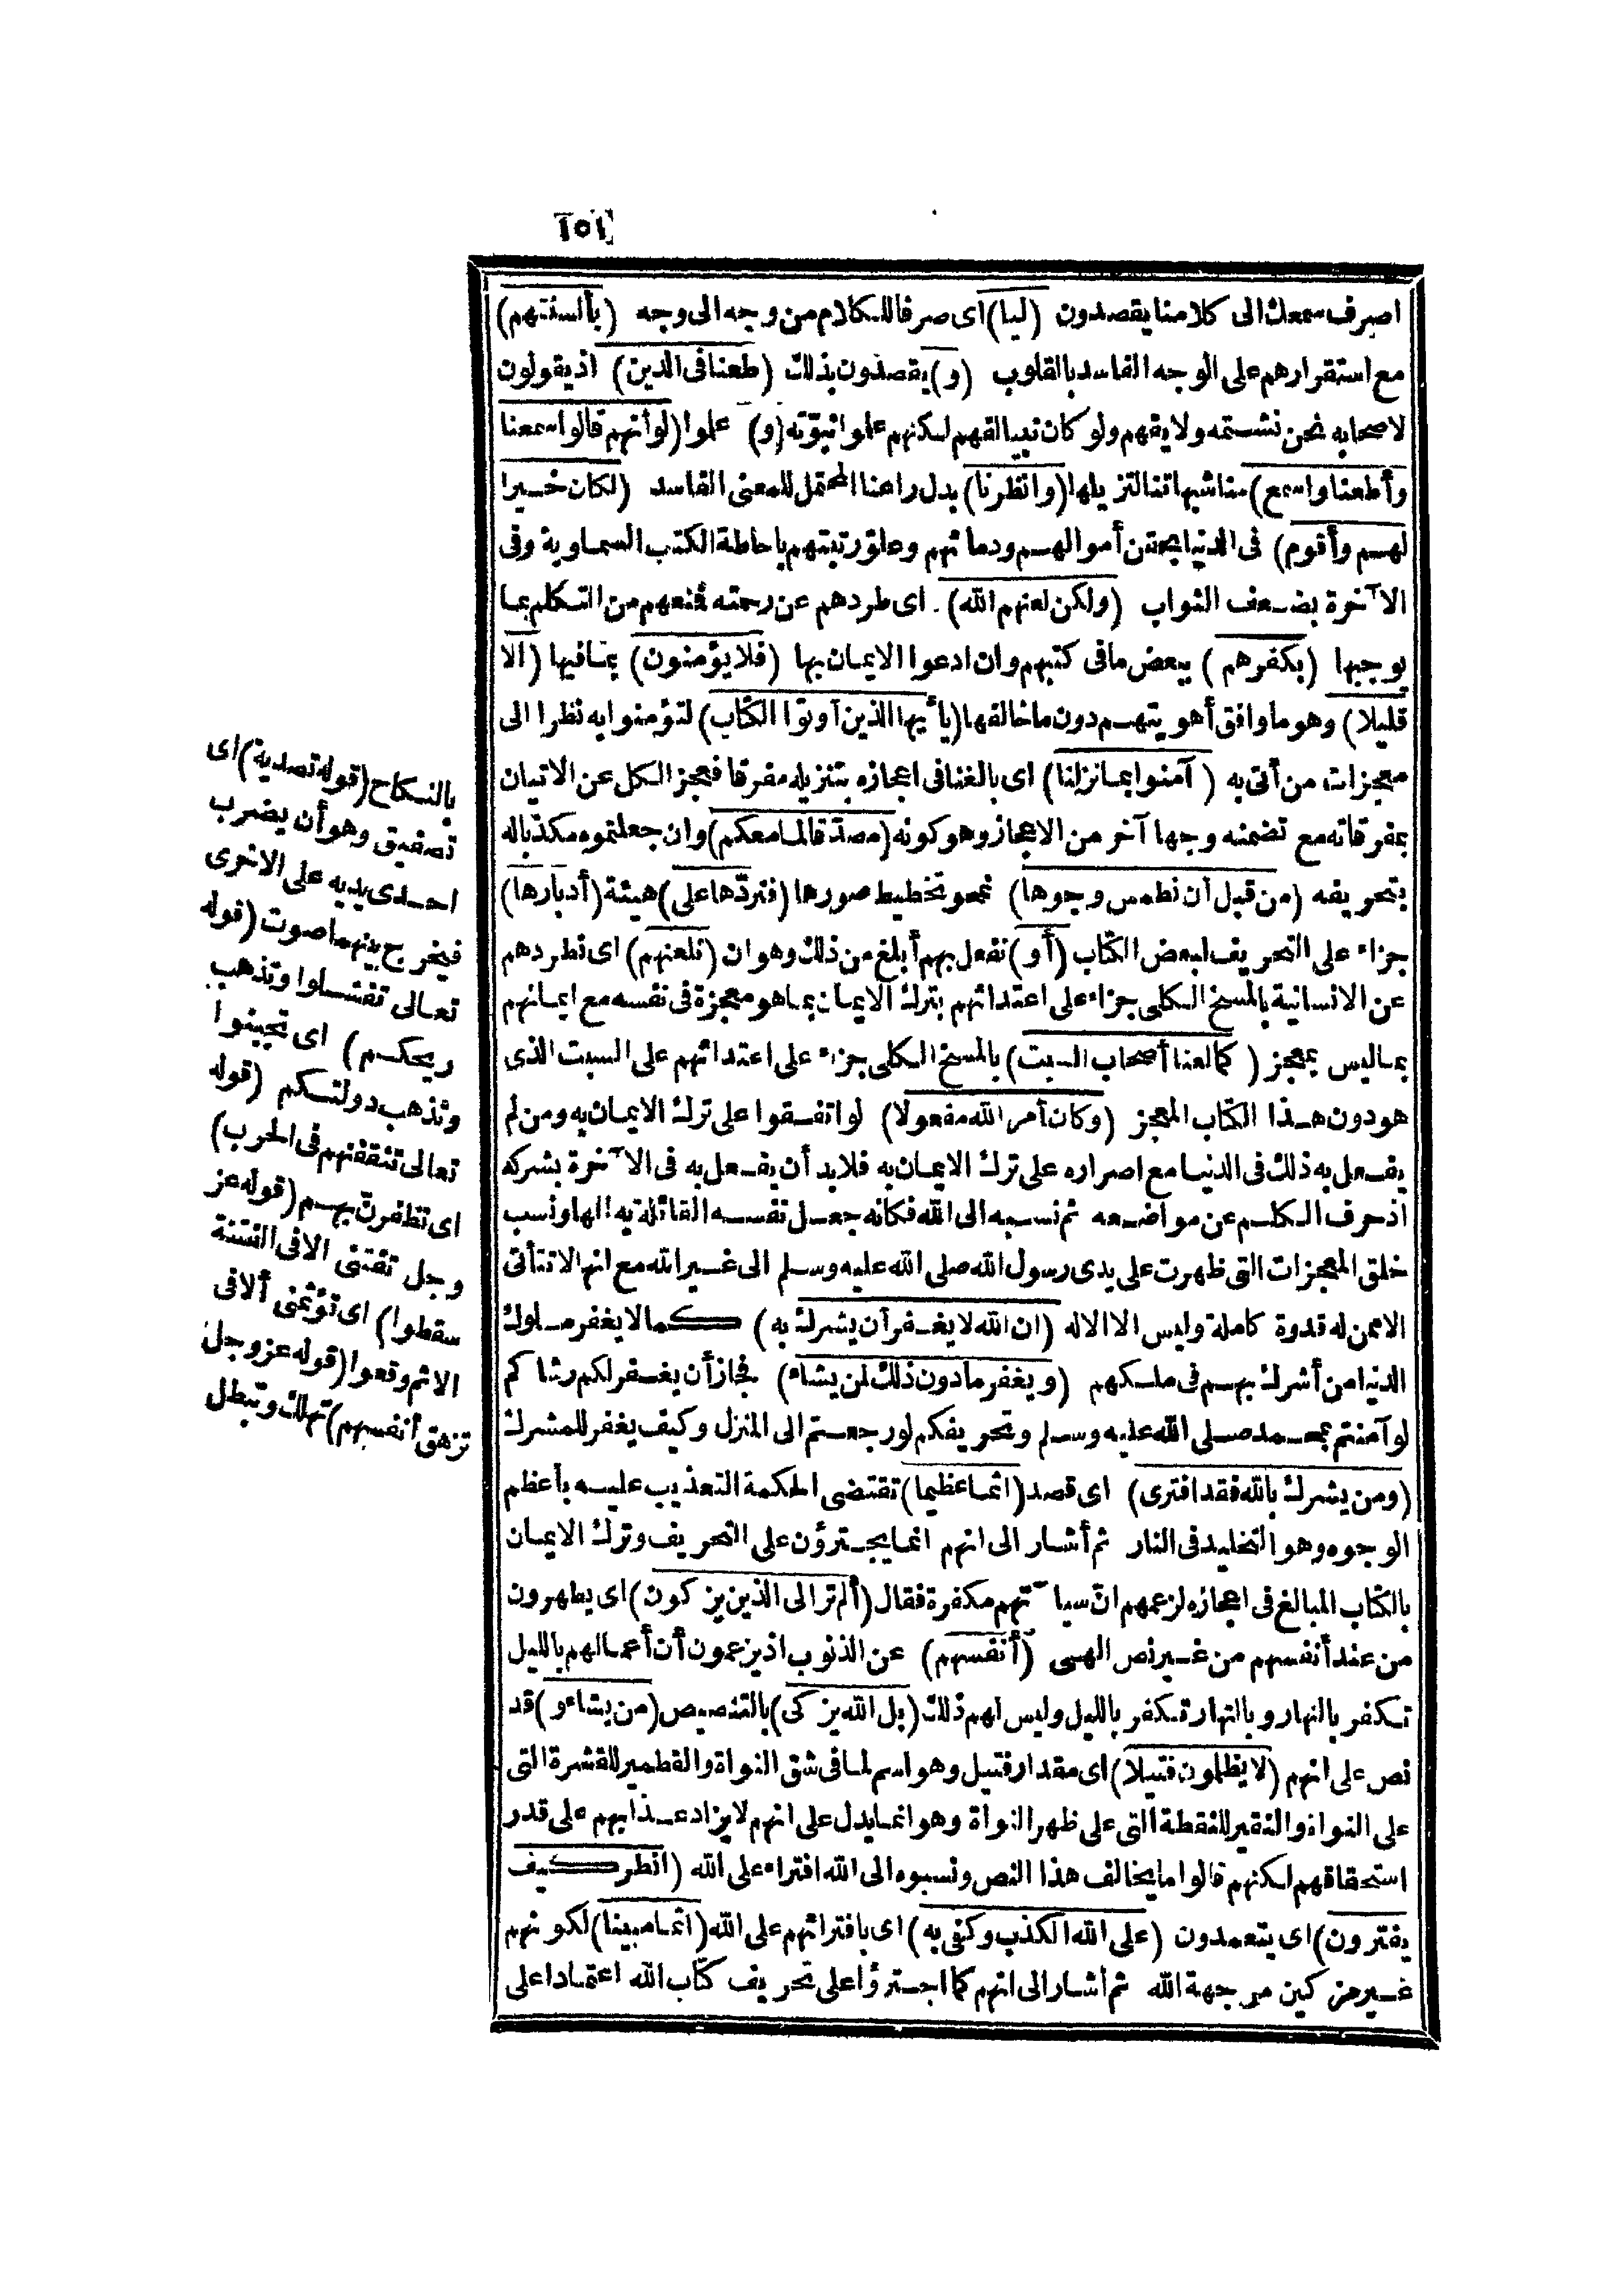 ١٥١
اصرف سمعك الى كلامنا يقصدون (ليا) اى صرفا للكلام من وجه الى وجه (بألسنتهم)
مع استقرارهم على الوجه الفاسد بالقلوب (و) يقصدون بذلك (طعنا فى الدين) اذ يقولون
لاصحابه نحن نشتمه ولا يفهم ولو كان نبيا لفهم لكنهم علموا نبوّته (و) علموا (لو أنهم قالوا سمعنا
وأطعنا واسمع) مناشبهاتنا لتزيلها (وانظرنا) بدل راعنا المحتمل للمعنى الفاسد (لكان خيرا
لهم وأقوم) فى الدنيا بحقن أموالهم ودمائهم وعلوّ رتبتهم باحاطة الكتب السماوية وفى
الآخرة بضعف الثواب (ولكن لعنهم الله) اى طردهم عن رحمته فمنعهم من التكلم بما
يوجبها (بكفرهم) ببعض ما فى كتبهم وان ادعوا الايمان بها (فلا يؤمنون) بما فيها (الا
قليلا) وهو ما وافق أهويتهم دون ما خالفها (يا أيها الذين أوتوا الكتاب) لتؤمنوا به نظرا الى
معجزات من أتى به (آمنوا بما نزلنا) اى بالغنا فى اعجازه بتنزيله مفرقا فعجز الكل عن الاتيان
بمفرقاته مع تضمنه وجها آخر من الاعجاز وهو كونه (مصدّقا لما معكم) وان جعلتموه مكذباله
بتحريفه (من قبل أن نطمس وجوها) نمحو تخطيط صورها (فنردّها على) هيئة (أدبارها)
جزاء على التحريف لبعض الكتاب (أو) نفعل بهم أبلغ من ذلك وهو ان (نلعنهم) اى نطردهم
عن الانسانية بالمسخ الكلى جزاء على اعتدائهم بترك الايمان بما هو معجزة فى نفسه مع ايمانهم
بما ليس بمعجز (كما لعنا أصحاب السبت) بالمسخ الكلى جزاء على اعتدائهم على السبت الذى
هو دون هذا الكتاب المعجز (وكان أمر الله مفعولا) لو اتفقوا على ترك الايمان به ومن لم
يفعل به ذلك فى الدنيا مع اصراره على ترك الايمان به فلا بد أن يفعل به فى الآخرة بشركه
اذ حرف الكلم عن مواضعه ثم نسبه الى الله فكانه جعل نفسه القائلة به الها ونسب
خلق المعجزات التى ظهرت على يدى رسول الله صلى الله عليه وسلم الى غير الله مع انها لا تتأتى
الا ممن له قدرة كاملة وليس الا الاله (ان الله لا يغفر أن يشرك به) كما لا يغفر ملوك
الدنيا من أشرك بهم فى ملكهم (ويغفر ما دون ذلك لمن يشاء) فجاز أن يغفر لكم رشاكم
لو آمنتم بمحمد صلى الله عليه وسلم وتحريفكم لو رجعتم الى المنزل وكيف يغفر للمشرك
(ومن يشرك بالله فقد افترى) اى قصد (اثما عظيما) تقتضى الحكمة التعذيب عليه بأعظم
الوجوه وهو التخليد فى النار ثم أشار الى انهم انما يجترؤن على التحريف وترك الايمان
بالكتاب المبالغ فى اعجازه لزعمهم انّ سيآتهم مكفرة فقال (ألم تر الى الذين يزكون) اى يطهرون
من عند أنفسهم من غير نص الهى (أنفسهم) عن الذنوب اذ يزعمون أن أعمالهم بالليل
تكفر بالنهار وبالنهار تكفر بالليل وليس لهم ذلك (بل الله يزكى) بالتنصيص (من يشاء و) قد
نص على انهم (لا يظلمون فتيلا) اى مقدار فتيل وهو اسم لما فى شق النواة والقطمير للقشرة التى
على النواة والنقير للنقطة التى على ظهر النواة وهو انما يدل على انهم لا يزاد عذابهم على قدر
استحقاقهم لكنهم قالوا ما يخالف هذا النص ونسبوه الى الله افتراء على الله (انظر كيف
يفترون) اى يتعمدون (على الله الكذب وكفى به) اى بافترائهم على الله (اثما مبينا) لكونهم
غير مزكين من جهة الله ثم أشار الى انهم كما اجترؤا على تحريف كتاب الله اعتمادا على
بالنكاح (قوله تصدية) اى
تصفيق وهو أن يضرب
احدى يديه على الاخرى
فيخرج بينهما صوت (قوله
تعالى تفشلوا وتذهب
ريحكم) اى تجبنوا
وتذهب دولتكم (قوله
تعالى تثقفنهم فى الحرب)
اى تظفرنّ بهم (قوله عز
وجل تفتنى الا فى الفتنة
سقطوا) اى تؤثمنى ألا فى
الاثم وقعوا (قوله عز وجل
تزهق أنفسهم) تهلك وتبطل